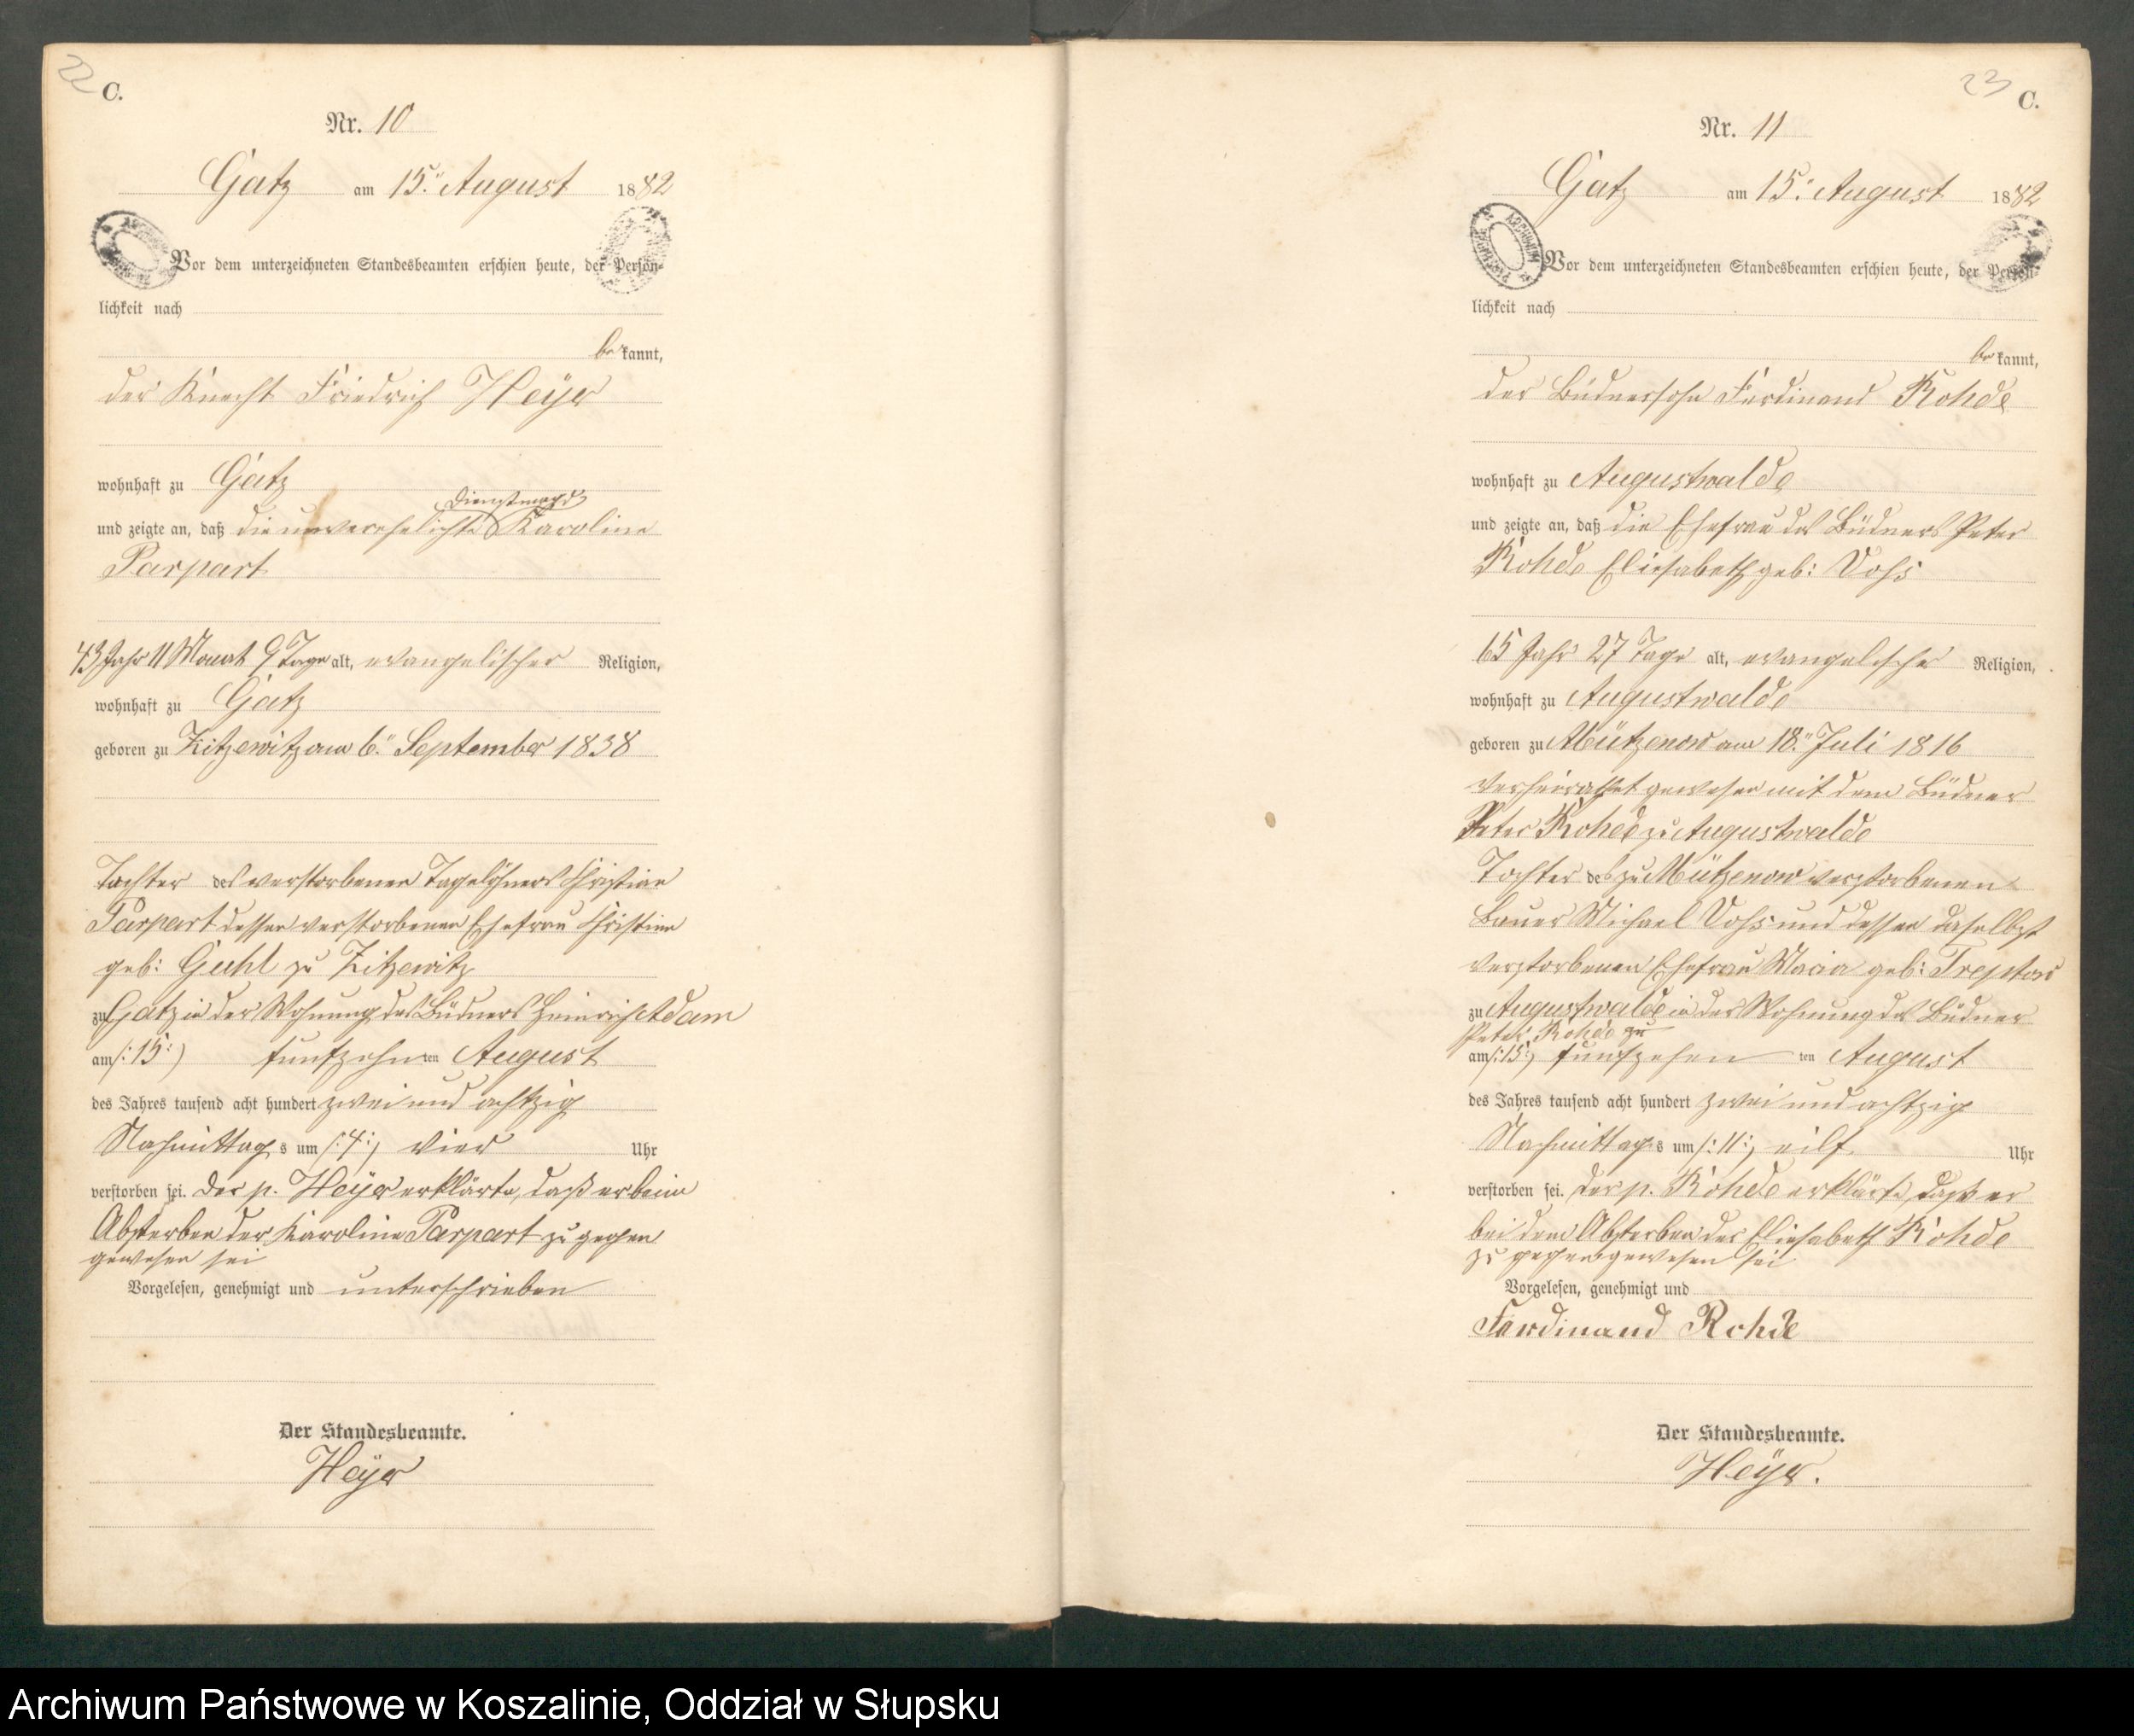 22
C.
Nr. 10
Gatz am 15. August 1882
Vor dem unterzeichneten Standesbeamten erschien heute, der Persön-
lichkeit nach
bekannt,
der Knecht Friedrich Heÿer
wohnhaft zu Gatz
Dienstmagd
und zeigte an, daß die unverehelichte Karoline
Parpart
43 Jahr 11 Monat 9 Tage alt, evangelischer Religion,
wohnhaft zu Gatz
geboren zu Zitzewitz am 6. September 1838
Tochter des verstorbenen Tagelöhners Christian
Parpart dessen verstorbenen Ehefrau Christine
geb: Guhl zu Zitzewitz
zu Gatz in der Wohnung des Büdners Heinrich Adam
am /:15:/ fünfzehnten August
des Jahres tausend acht hundert zwei und achtzig
Nachmittags um /:4:/ vier Uhr
verstorben sei. Der p. Heÿer erklärte, daß er beim
Absterben der Karoline Parpart zu gegen
gewesen sei
Vorgelesen, genehmigt und unterschrieben
Der Standesbeamte.
Heÿer
23
C.
Nr. 11
Gatz am 15. August 1882
ARCHIWUM
Vor dem unterzeichneten Standesbeamten erschien heute, der Persön-
lichkeit nach
bekannt,
der Büdnersohn Ferdinand Rohde
wohnhaft zu Augustwalde
und zeigte an, daß die Ehefrau des Büdners Peter
Rohde Eliesabeth geb: Voß
65 Jahr 27 Tage alt, evangelischer Religion,
wohnhaft zu Augustwalde
geboren zu Mützenow am 18. Juli 1816
verheirathet gewesen mit dem Büdner
Peter Rohde zu Augustwalde
Tochter des zu Mützenow verstorbenen
Bauer Michael Voß und dessen daselbst
verstorbenen Ehefrau Maria geb: Treptow
zu Augustwalde in der Wohnung des Büdner
Peter Rohde zu
am /:15:/ fünfzehen ten August
des Jahres tausend acht hundert zwei und achtzig
Nachmittags um /:11:/ eilf Uhr
verstorben sei. Der p. Rohde erklärte, daß er
bei dem Absterben der Eliesabeth Rohde
zu gegen gewesen sei
Vorgelesen, genehmigt und
Ferdinand Rohde
Der Standesbeamte.
Heÿer.
Archiwum Państwowe w Koszalinie, Oddział w Słupsku